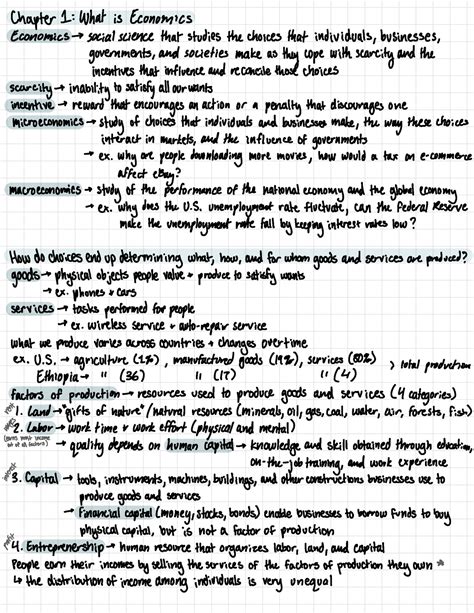 Chapter 1: What is Economics
Economics → social science that studies the choices that individuals, businesses,
governments, and societies make as they cope with scarcity and the
incentives that influence and reconcile those choices
scarcity → inability to satisfy all our wants
incentive → reward that encourages an action or a penalty that discourages one
microeconomics → study of choices that individuals and businesses make, the way these choices
interact in markets, and the influence of governments
→ ex. why are people downloading more movies, how would a tax on e-commerce
affect ebay?
macroeconomics → study of the performance of the national economy and the global economy
→ ex. why does the U.S. unemployment rate fluctuate, can the Federal Reserve
make the unemployment rate fall by keeping interest rates low?
How do choices end up determining what, how, and for whom goods and services are produced?
goods → physical objects people value + produce to satisfy wants
→ ex. phones + cars
services → tasks performed for people
→ ex. wireless service + auto-repair service
what we produce varies across countries + changes overtime
ex. U.S. → agriculture (1%), manufactured goods (19%), services (80%)
> total production
Ethiopia → " (36) " (17) " (4)
factors of production → resources used to produce goods and services (4 categories)
rent
1. Land → "gifts of nature" / natural resources (minerals, oil, gas, coal, water, air, forests, fish)
wages
2. Labor → work time + work effort (physical and mental)
(earns most income out of all factors)
→ quality depends on human capital → knowledge and skill obtained through education,
on-the-job training, and work experience
interest
3. Capital → tools, instruments, machines, buildings, and other constructions businesses use to
produce goods and services
→ Financial capital (money, stocks, bonds) enable businesses to borrow funds to buy
physical capital, but is not a factor of production
profit
4. Entreprenership → human resource that organizes labor, land, and capital
People earn their incomes by selling the services of the factors of production they own *
↳ the distribution of income among individuals is very unequal